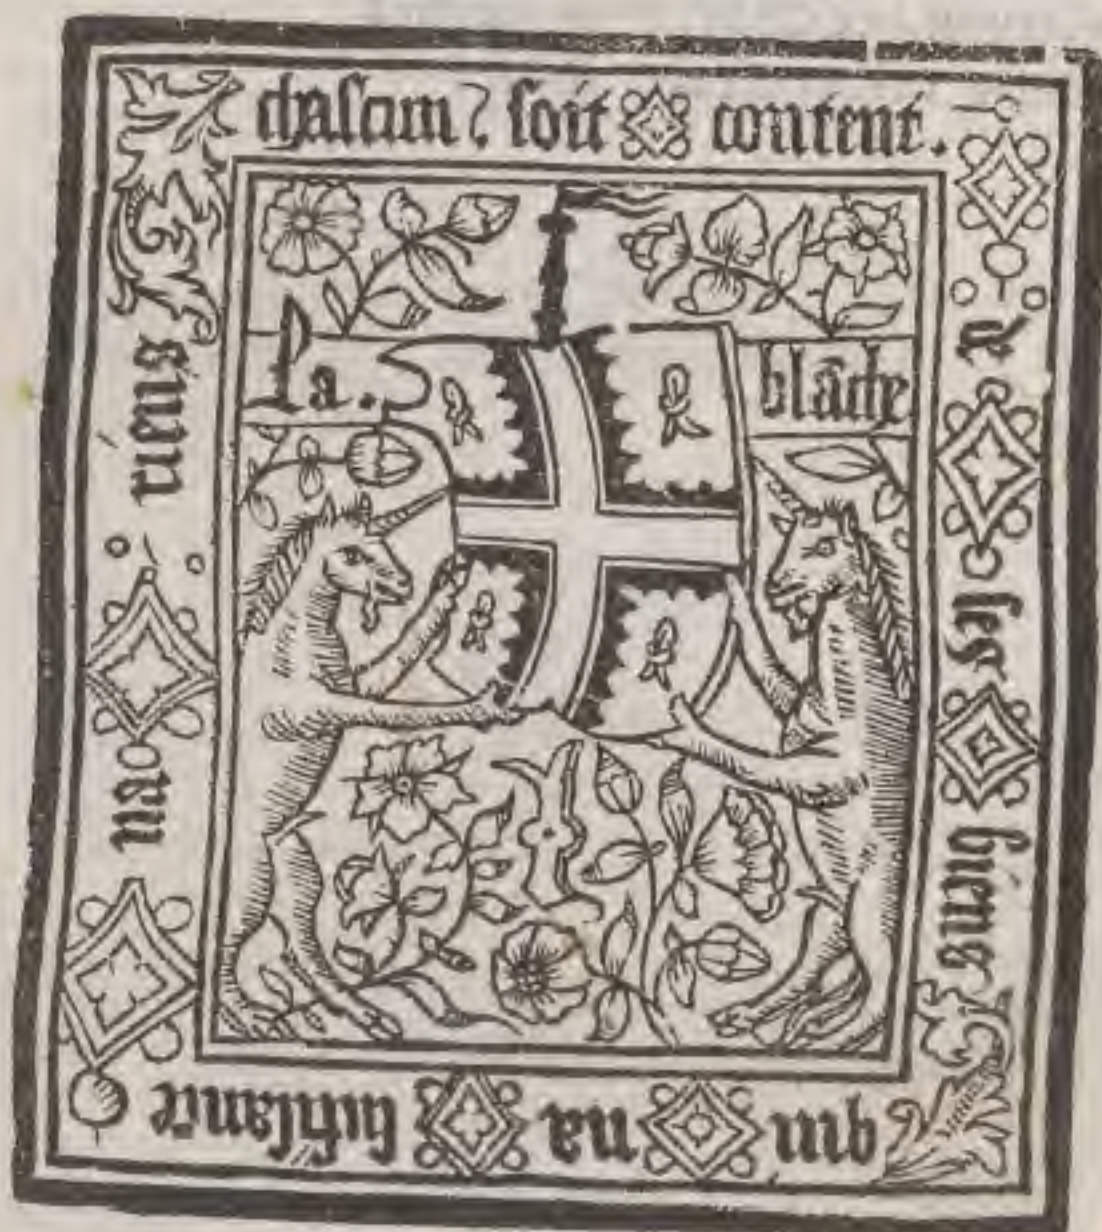 chascun soit content.
de ses biens
qui na suffisance
na riens
La. blãche